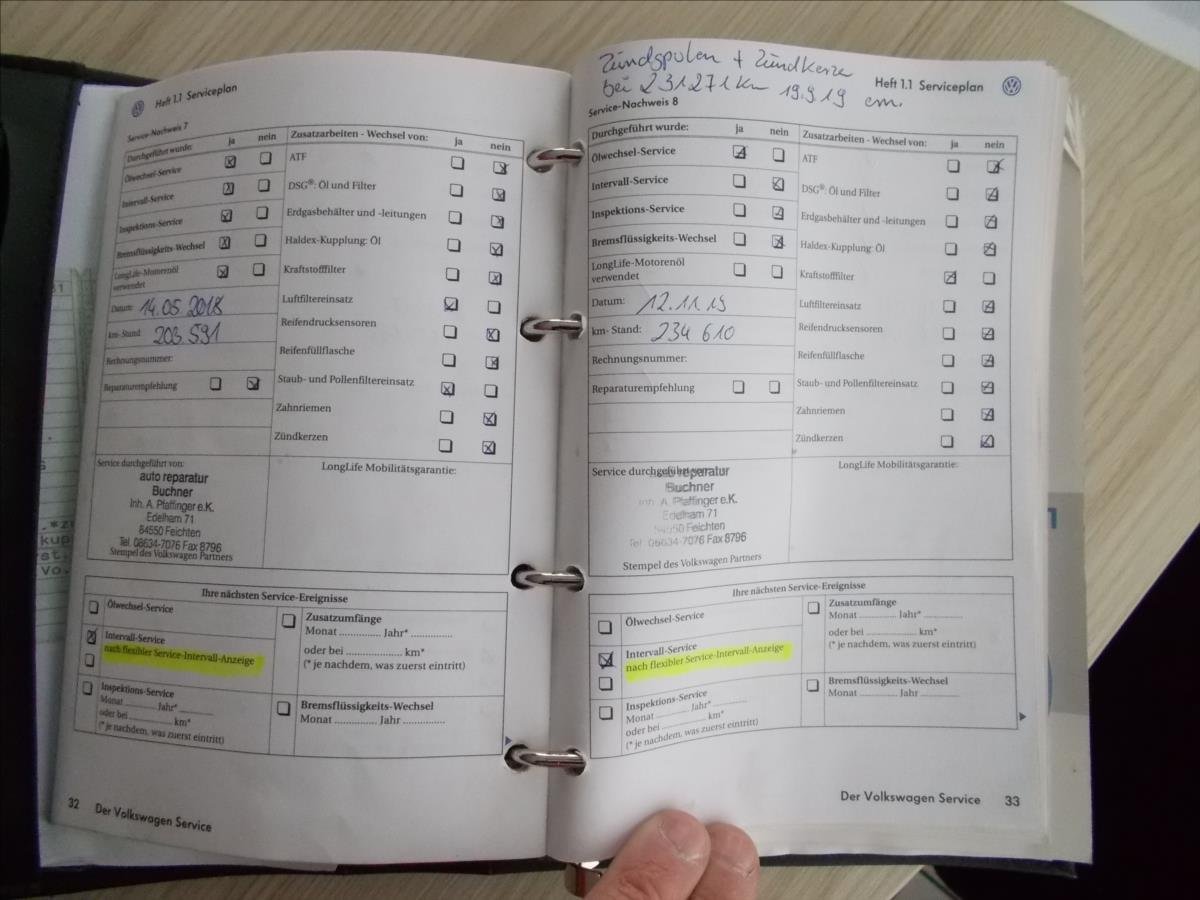 Heft 1.1 Serviceplan
Service-Nachweis 7
Durchgeführt wurde: ja nein
Ölwechsel-Service
Intervall-Service
Inspektions-Service
Bremsflüssigkeits-Wechsel
LongLife-Motorenöl
verwendet
Datum: 14.05.2018
km-Stand: 203 591
Rechnungsnummer:
Reparaturempfehlung
Zusatzarbeiten - Wechsel von: ja nein
ATF
DSG®: Öl und Filter
Erdgasbehälter und -leitungen
Haldex-Kupplung: Öl
Kraftstofffilter
Luftfiltereinsatz
Reifendrucksensoren
Reifenfüllflasche
Staub- und Pollenfiltereinsatz
Zahnriemen
Zündkerzen
Service durchgeführt von:
auto reparatur
Buchner
Inh. A. Pfaffinger e.K.
Edelham 71
84550 Feichten
Tel. 08634-7076 Fax 8796
Stempel des Volkswagen Partners
LongLife Mobilitätsgarantie:
Ihre nächsten Service-Ereignisse
Ölwechsel-Service
Intervall-Service
nach flexibler Service-Intervall-Anzeige
Inspektions-Service
Monat ............ Jahr* ............
oder bei .................... km*
(* je nachdem, was zuerst eintritt)
Zusatzumfänge
Monat ............ Jahr* ............
oder bei .................... km*
(* je nachdem, was zuerst eintritt)
Bremsflüssigkeits-Wechsel
Monat ............ Jahr ............
32 Der Volkswagen Service
Zündspulen + Zündkerze
bei 231271 km 19.9.19
Heft 1.1 Serviceplan
Service-Nachweis 8
Durchgeführt wurde: ja nein
Ölwechsel-Service
Intervall-Service
Inspektions-Service
Bremsflüssigkeits-Wechsel
LongLife-Motorenöl
verwendet
Datum: 12.11.19
km-Stand: 234 610
Rechnungsnummer:
Reparaturempfehlung
Zusatzarbeiten - Wechsel von: ja nein
ATF
DSG®: Öl und Filter
Erdgasbehälter und -leitungen
Haldex-Kupplung: Öl
Kraftstofffilter
Luftfiltereinsatz
Reifendrucksensoren
Reifenfüllflasche
Staub- und Pollenfiltereinsatz
Zahnriemen
Zündkerzen
Service durchgeführt von:
auto reparatur
Buchner
Inh. A. Pfaffinger e.K.
Edelham 71
84550 Feichten
Tel. 08634-7076 Fax 8796
Stempel des Volkswagen Partners
LongLife Mobilitätsgarantie:
Ihre nächsten Service-Ereignisse
Ölwechsel-Service
Intervall-Service
nach flexibler Service-Intervall-Anzeige
Inspektions-Service
Monat ............ Jahr* ............
oder bei .................... km*
(* je nachdem, was zuerst eintritt)
Zusatzumfänge
Monat ............ Jahr* ............
oder bei .................... km*
(* je nachdem, was zuerst eintritt)
Bremsflüssigkeits-Wechsel
Monat ............ Jahr ............
Der Volkswagen Service 33